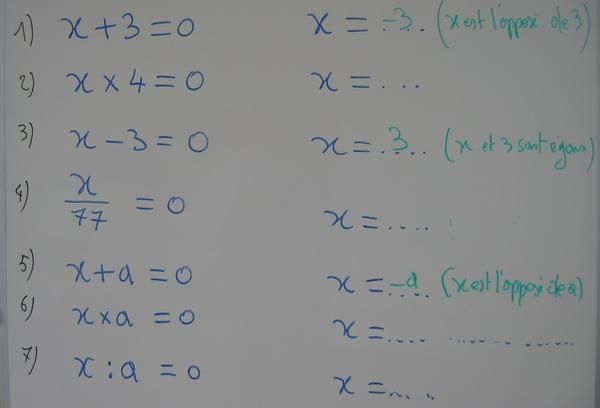 1) x + 3 = 0 x = -3.. (x est l'opposé de 3)
2) x × 4 = 0 x = ...
3) x - 3 = 0 x = .3... (x et 3 sont égaux)
4) x/77 = 0 x = ....
5) x + a = 0 x = -a.. (x est l'opposé de a)
6) x × a = 0 x = .... .... ... ......
7) x : a = 0 x = .....